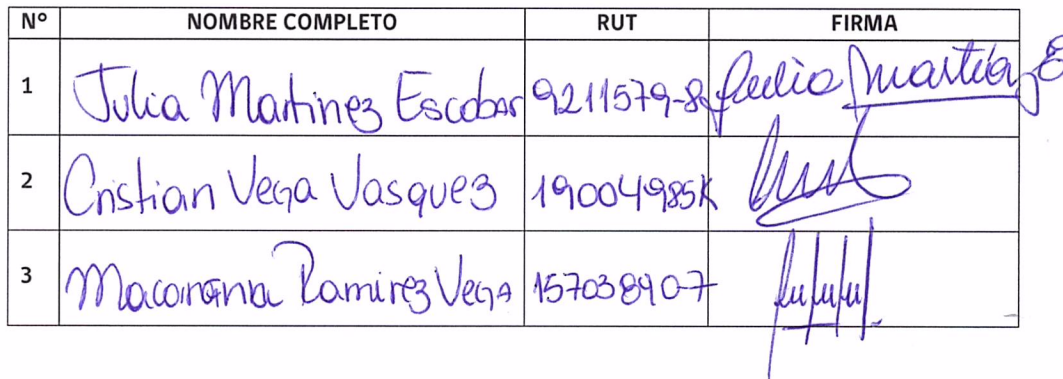 N° NOMBRE COMPLETO RUT FIRMA
1 Julia Martinez Escobar 9211579-8 Julia Martínez E
2 Cristian Vega Vasquez 19004985K
3 Ramirez Vega 15703890-7